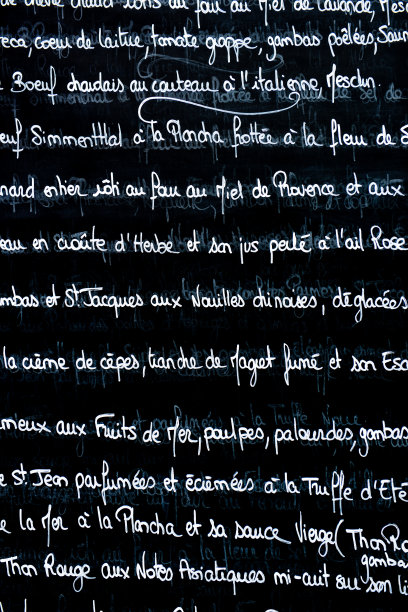 de chèvre chaud rôtis au four au Miel de Lavande, Mesc
eca, coeur de laitue, tomate grappe, gambas poêlées, Sauc
Boeuf chardais au couteau à l'italienne, Mesclun.
euf Simmenthal à la Plancha frottée à la fleur de S
nard entier rôti au four au Miel de Provence et aux
eau en croûte d'Herbe et son jus perlé à l'ail Rose
mbas et St Jacques aux Nouilles chinoises, déglacées
la crème de cèpes, tranche de Magret fumé et son Esca
mieux aux Fruits de Mer, poulpes, palourdes, gambas
e St. Jean parfumées et écrémées à la Truffe d'Eté
e la Mer à la Plancha et sa sauce Vierge (Thon Ro
gambas
Thon Rouge aux Notes Asiatiques mi-cuit sur son li